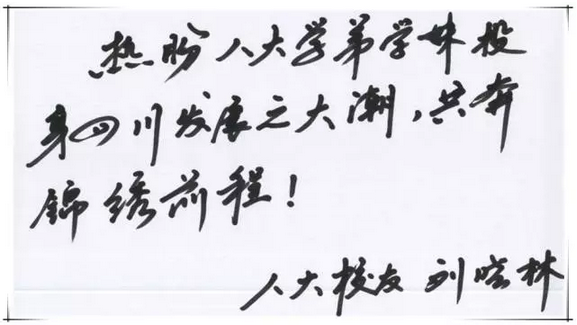 热盼人大学弟学妹投
身四川发展之大潮,共奔
锦绣前程!
人大校友 刘晓林